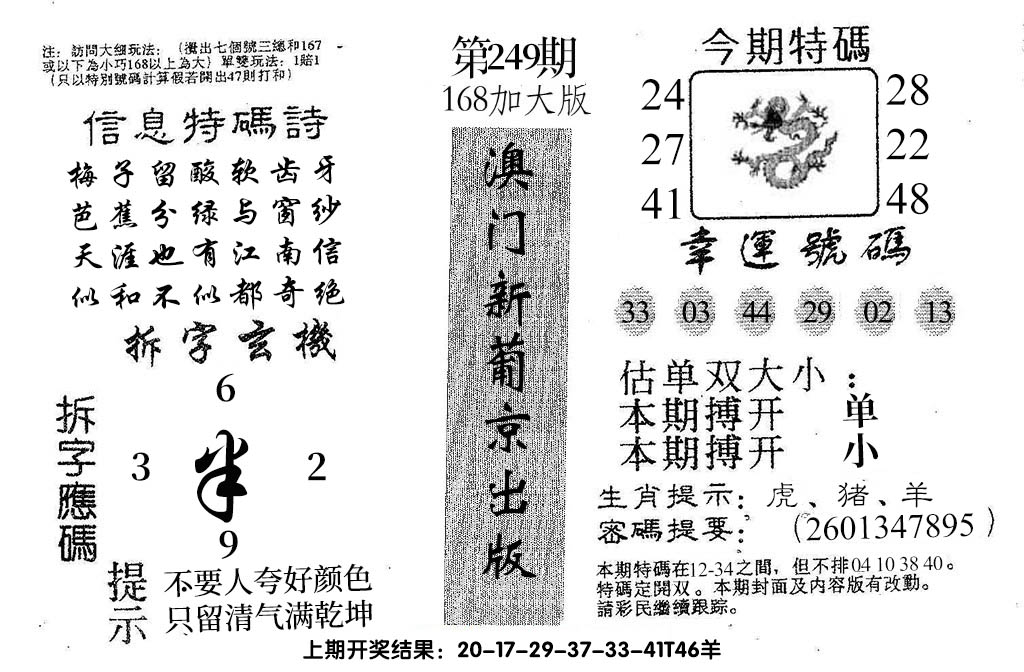 注：訪問大細玩法：（攪出七個號三總和167
或以下為小巧168以上為大）單雙玩法：1賠1
（只以特別號碼計算假若開出47則打和）
信息特碼詩
梅子留酸软齿牙
芭蕉分绿与窗纱
天涯也有江南信
似和不似都奇绝
拆字玄機
拆字應碼
6
3
半
2
9
提示
不要人夸好颜色
只留清气满乾坤
第249期
168加大版
澳门新葡京出版
今期特碼
24
28
27
22
41
48
幸運號碼
33 03 44 29 02 13
估单双大小：
本期搏开 单
本期搏开 小
生肖提示：虎、猪、羊
密碼提要：（2601347895）
本期特碼在12-34之間，但不排04 10 38 40。
特碼定開双。本期封面及内容版有改動。
請彩民繼續跟踪。
上期开奖结果：20-17-29-37-33-41T46羊